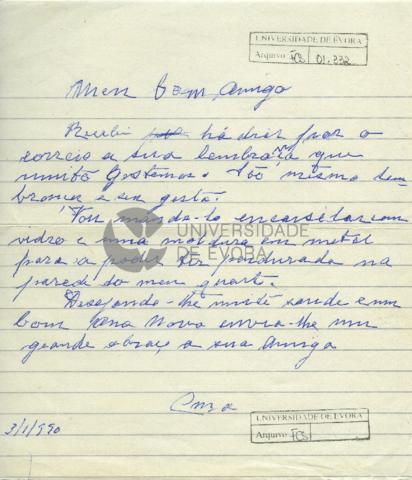 UNIVERSIDADE DE ÉVORA
Arquivo FCS 01.232
Meu bom amigo
Recebi há dias por o
correio a sua lembrança que
muito Gostámos. tão mesmo
e seu gosto.
Vou mandá-la encaixilhar com
vidro e uma moldura em metal
para a poder ter pendurada na
parede do meu quarto.
Desejando-lhe muita saude e um
bom Ano Novo envia-lhe um
grande abraço a sua amiga
UNIVERSIDADE DE ÉVORA
3/1/990
UNIVERSIDADE DE ÉVORA
Arquivo FCS